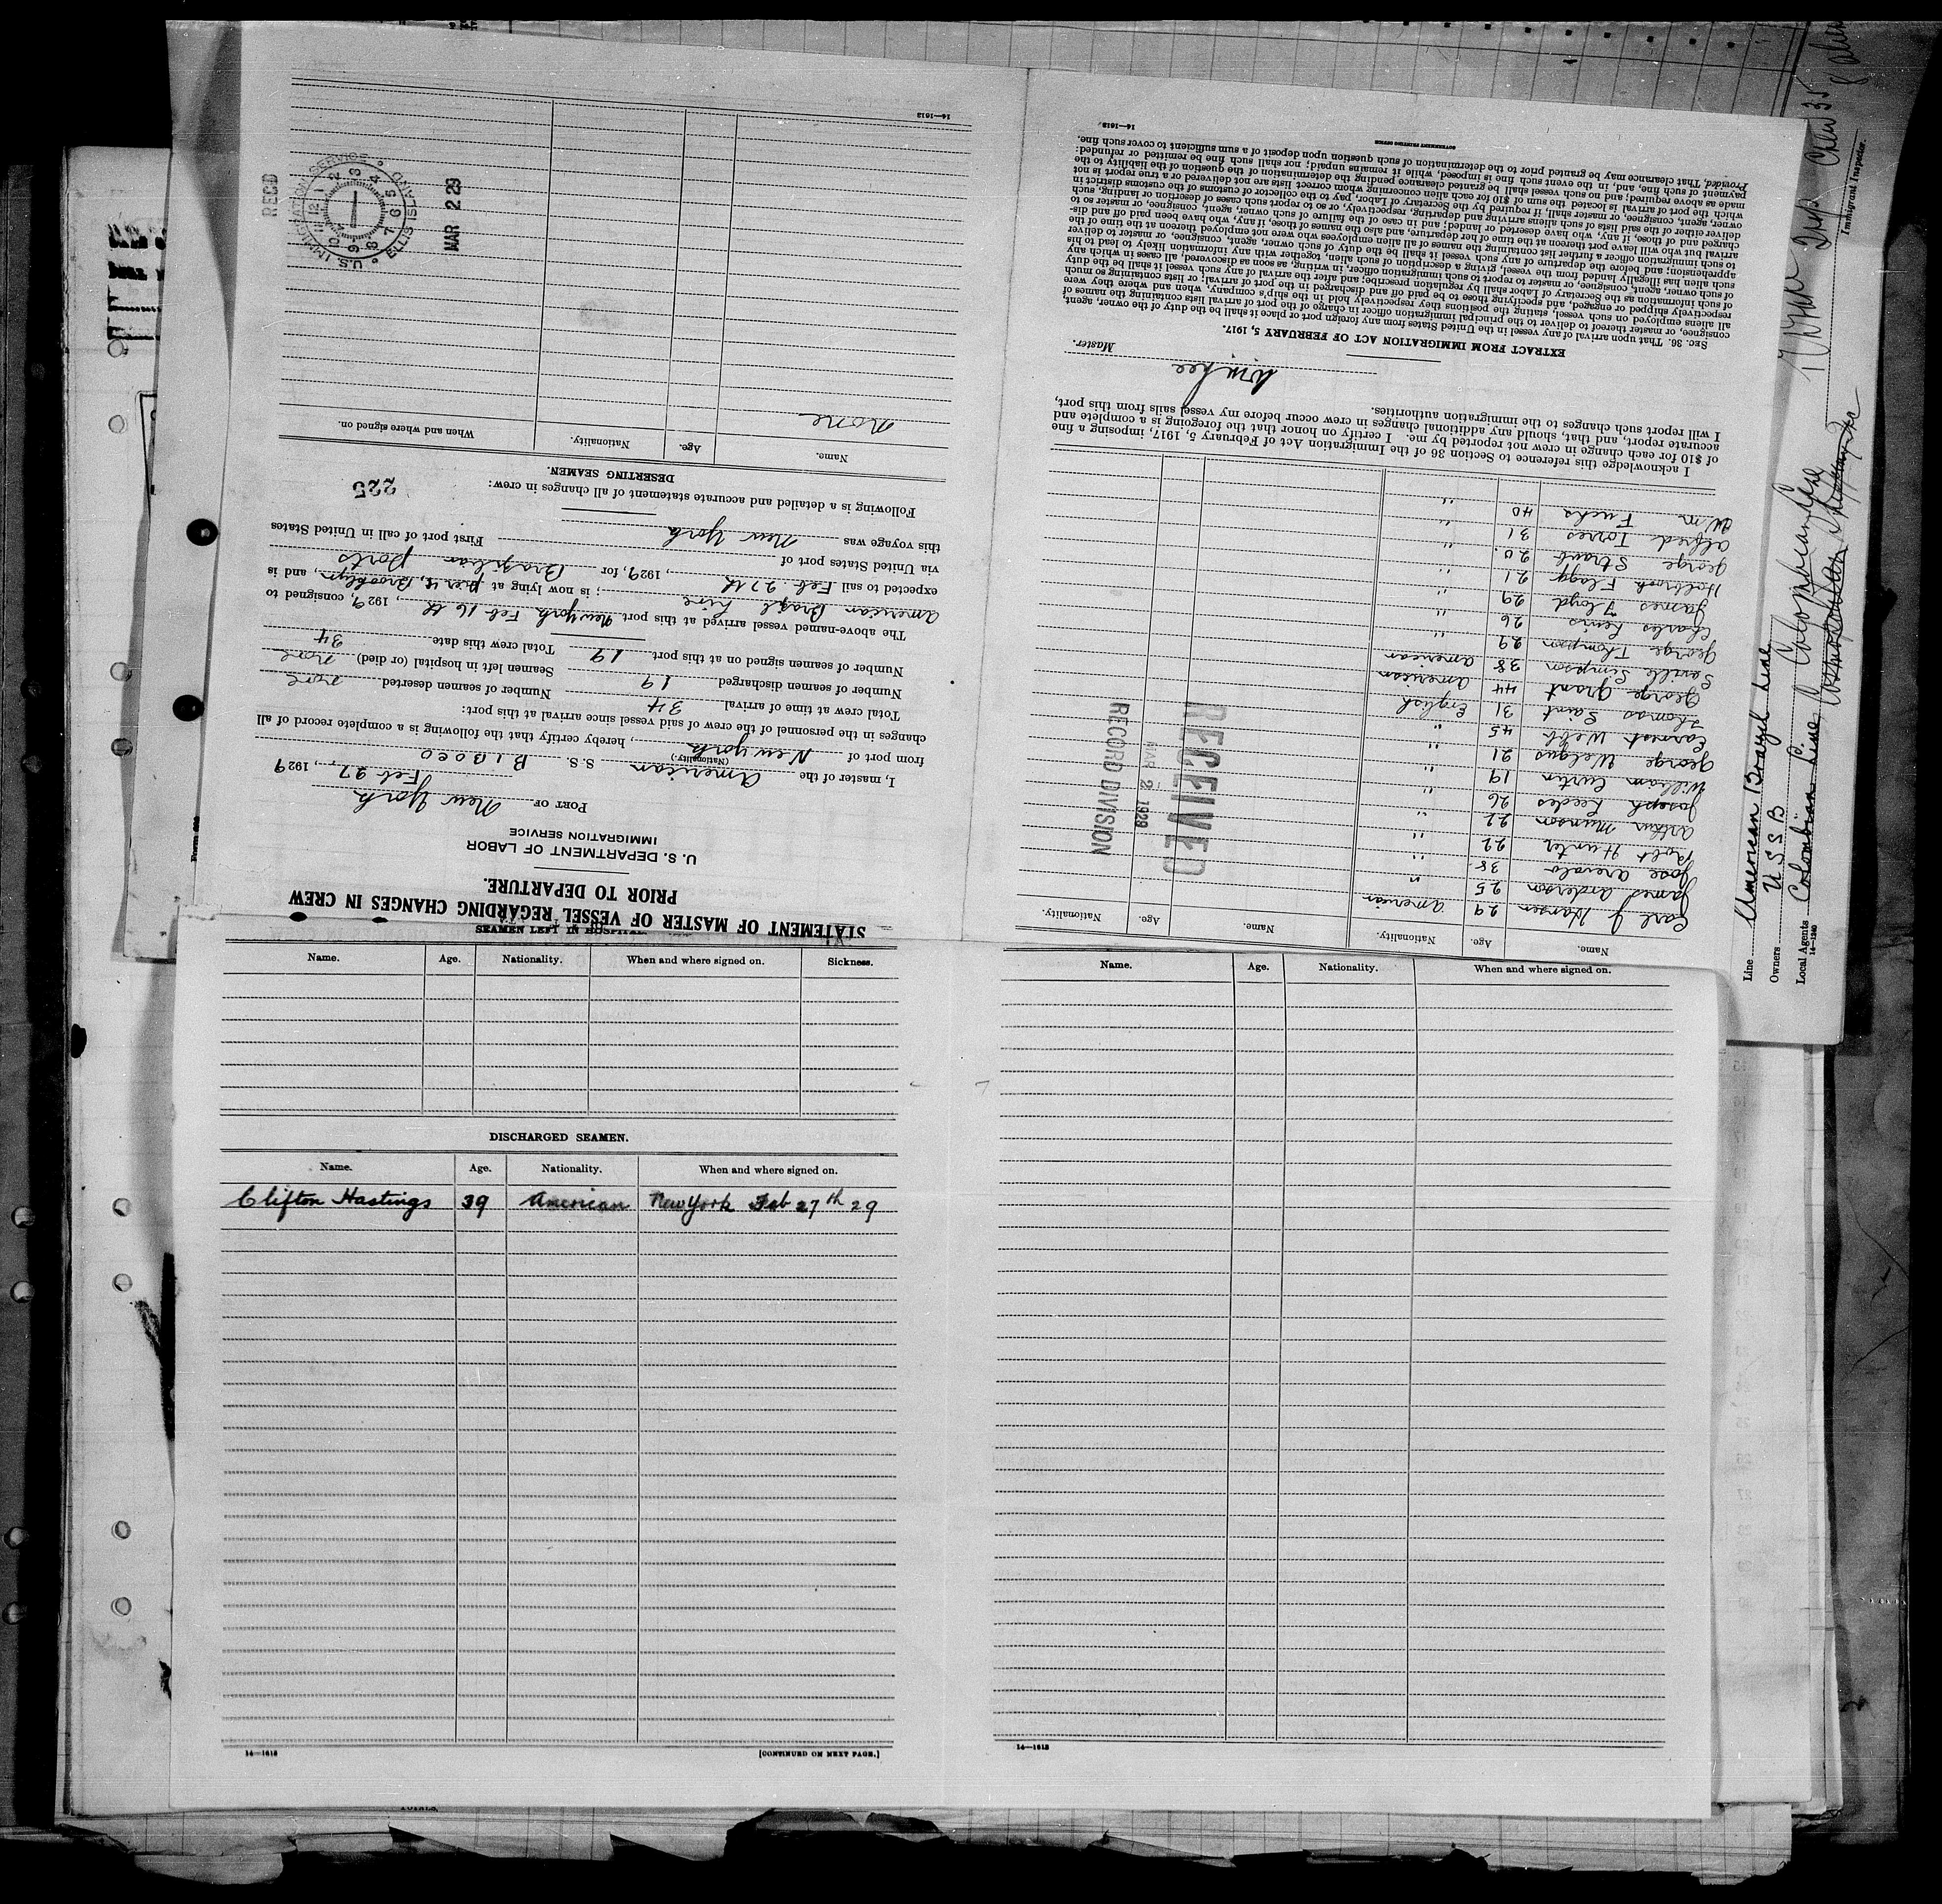 STATEMENT OF MASTER OF VESSEL REGARDING CHANGES IN CREW
PRIOR TO DEPARTURE.
U. S. DEPARTMENT OF LABOR
IMMIGRATION SERVICE
PORT OF New York
Feb 27, 1929
I, master of the American S. S. BIBOCO
(Nationality)
from port of New York, hereby certify that the following is a complete record of all
changes in the personnel of the crew of said vessel since arrival at this port:
Total crew at time of arrival 34
Number of seamen discharged 19 Number of seamen deserted none
Number of seamen signed on at this port 19 Seamen left in hospital (or died) none
Total crew this date 34
The above-named vessel arrived at this port New York Feb 16th, 1929, consigned to
American Brazil Line; is now lying at pier 4, Brooklyn, and is
expected to sail Feb 27th, 1929, for Brazilian ports
via United States port of
this voyage was New York First port of call in United States
Following is a detailed and accurate statement of all changes in crew:
225
DESERTING SEAMEN.
Name. Age. Nationality. When and where signed on.
None
14—1613
REC'D
U.S. IMMIGRATION SERVICE
ELLIS ISLAND
MAR 2 29
Name. Age. Nationality. Name. Age. Nationality.
Earl J Hansen 29 American
James Anderson 25 "
Jose Arevalo 38 "
Robt Hunter 22 "
Arthur Munson 22 "
Joseph Leedes 26 "
William Curtin 19 "
George Welgus 21 "
Earnest Webb 45 "
Thomas Saint 31 English
George Grant 44 American
Saville Simpson 38 American
George Thompson 29 "
Charles Lewis 26 "
James Floyd 29 "
Holbrook Flagg 21 "
George Straub 20 "
Alfred Torres 31 "
Wm Fuchs 40 "
RECEIVED
MAR 2 1929
RECORD DIVISION
I acknowledge this reference to Section 36 of the Immigration Act of February 5, 1917, imposing a fine
of $10 for each change in crew not reported by me. I certify on honor that the foregoing is a complete and
accurate report, and that, should any additional changes in crew occur before my vessel sails from this port,
I will report such changes to the immigration authorities.
Wm Lee
Master.
EXTRACT FROM IMMIGRATION ACT OF FEBRUARY 5, 1917.
SEC. 36. That upon arrival of any vessel in the United States from any foreign port or place it shall be the duty of the owner, agent,
consignee, or master thereof to deliver to the principal immigration officer in charge of the port of arrival lists containing the names of
all aliens employed on such vessel, stating the positions they respectively hold in the ship's company, when and where they were
respectively shipped or engaged, and specifying those to be paid off and discharged in the port of arrival; or lists containing so much
of such information as the Secretary of Labor shall by regulation prescribe; and after the arrival of any such vessel it shall be the duty
of such owner, agent, consignee, or master to report to such immigration officer, in writing, as soon as discovered, all cases in which any
such alien has illegally landed from the vessel, giving a description of such alien, together with any information likely to lead to his
apprehension; and before the departure of any such vessel it shall be the duty of such owner, agent, consignee, or master to deliver
to such immigration officer a further list containing the names of all alien employees who were not employed thereon at the time of the
arrival but who will leave port thereon at the time of her departure, and also the names of those, if any, who have been paid off and dis-
charged and of those, if any, who have deserted or landed; and in case of the failure of such owner, agent, consignee, or master so to
deliver either of the said lists of such aliens arriving and departing, respectively, or so to report such cases of desertion or landing, such
owner, agent, consignee, or master shall, if required by the Secretary of Labor, pay to the collector of customs of the customs district in
which the port of arrival is located the sum of $10 for each alien concerning whom correct lists are not delivered or a true report is not
made as above required; and no such vessel shall be granted clearance pending the determination of the question of the liability to the
payment of such fine, and, in the event such fine is imposed, while it remains unpaid; nor shall such fine be remitted or refunded:
Provided, That clearance may be granted prior to the determination of such question upon deposit of a sum sufficient to cover such fine.
GOVERNMENT PRINTING OFFICE
14—1613
Line American Brazil Line
Owners U S S B
Local Agents Colombian Line
14—1240
Immigrant Inspector.
Crew 35
SEAMEN LEFT IN HOSPITAL
Name. Age. Nationality. When and where signed on. Sickness.
DISCHARGED SEAMEN.
Name. Age. Nationality. When and where signed on.
Clifton Hastings 39 American New York Feb 27th 29
14—1613 [CONTINUED ON NEXT PAGE.]
Name. Age. Nationality. When and where signed on.
14—1613